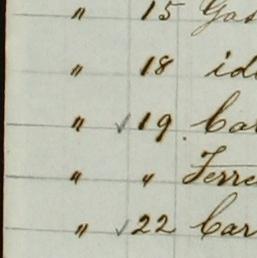 " 15 Gas
" 18 id
" ✓ 19 Car
" " Ferre
" ✓ 22 Car